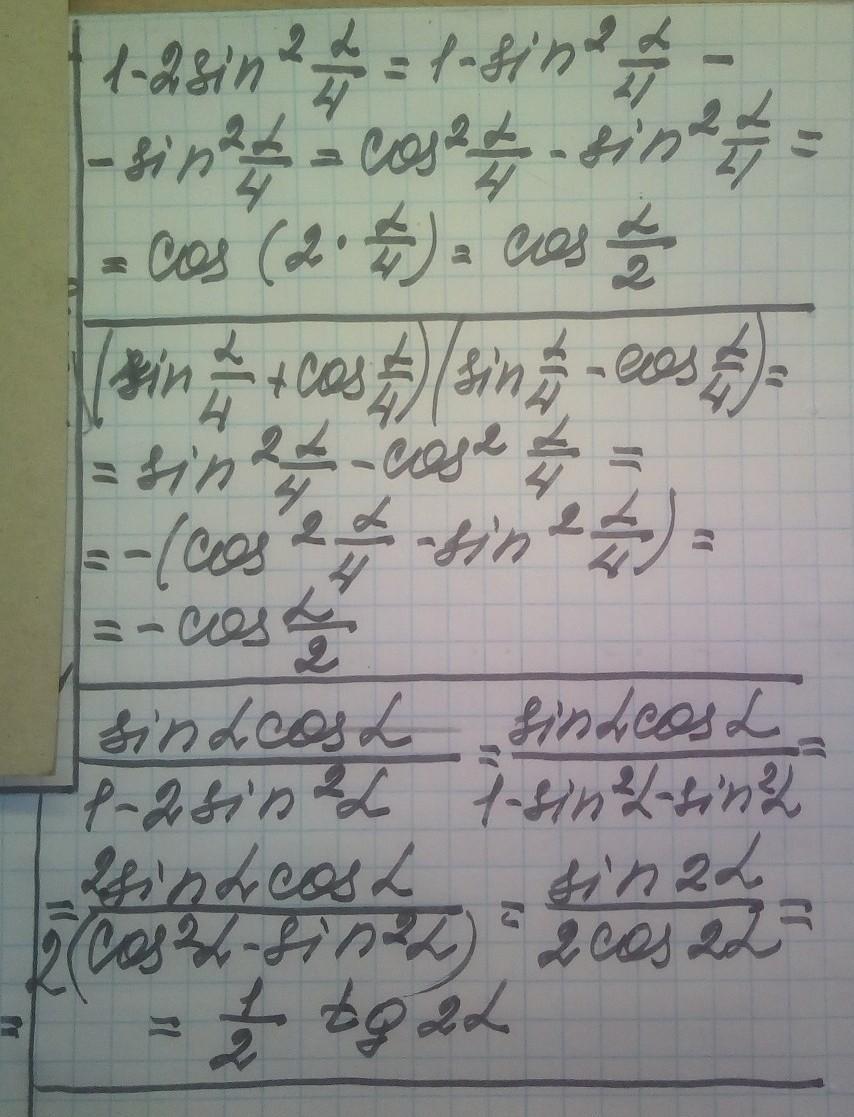 1-2sin² α/4 = 1-sin² α/4 -
- sin² α/4 = cos² α/4 - sin² α/4 =
= cos (2· α/4) = cos α/2
(sin α/4 + cos α/4)(sin α/4 - cos α/4) =
= sin² α/4 - cos² α/4 =
= -(cos² α/4 - sin² α/4) =
= - cos α/2
sinα cosα / 1-2sin²α = sinα cosα / 1-sin²α-sin²α =
= 2sinα cosα / 2(cos²α-sin²α) = sin 2α / 2cos 2α =
= 1/2 tg 2α
=